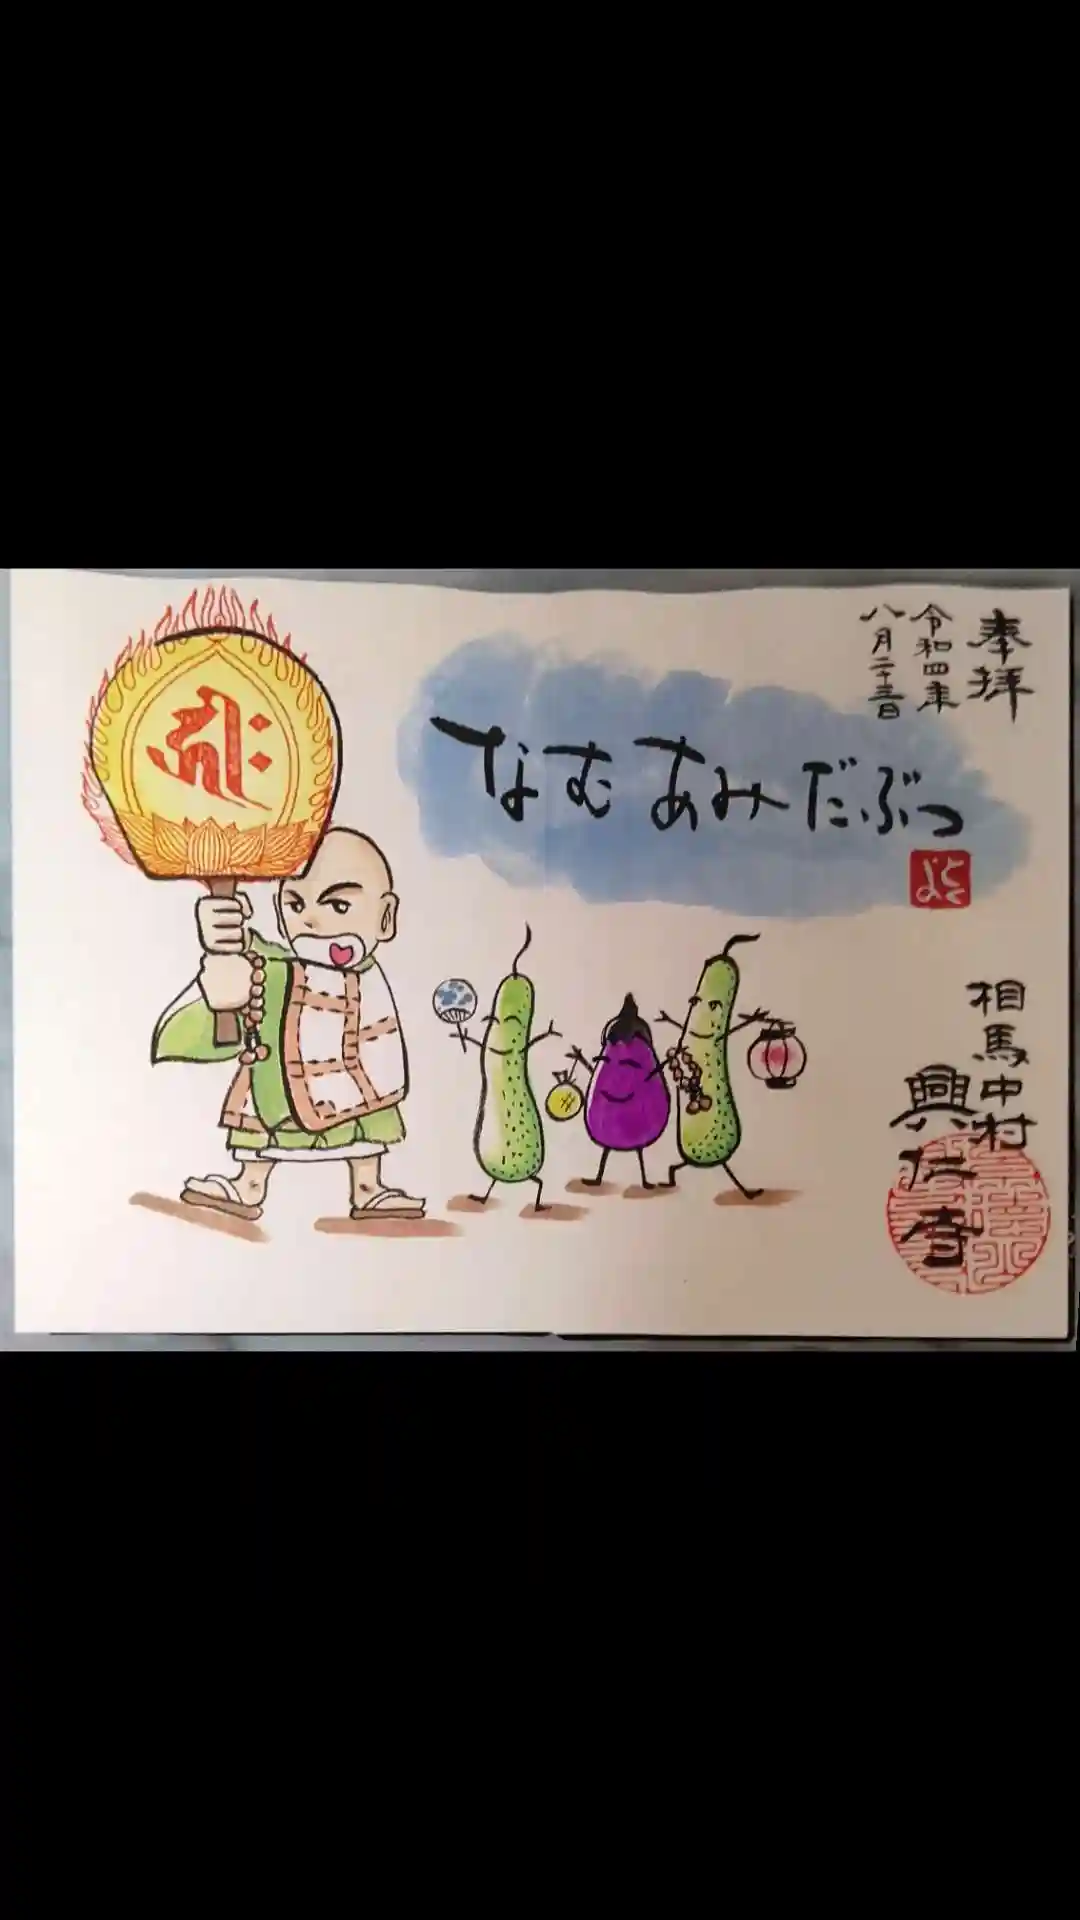 奉拝
令和四年
八月二十三日
なむあみだぶつ
とくよ
相馬中村
興仁寺